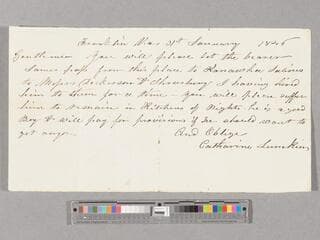 Franklin Va. 31st January 1846
Gentlemen You will please let the bearer
James pass from this place to Kanawha Salines
to Messrs Dickinson & Shrewsbury I having hired
him to them for a time - You will please suffer
him to remain in Kitchens at Nights he is a good
Boy & will pay for provisions if he should want to
get any.
And Oblige
Catharine Lumkins